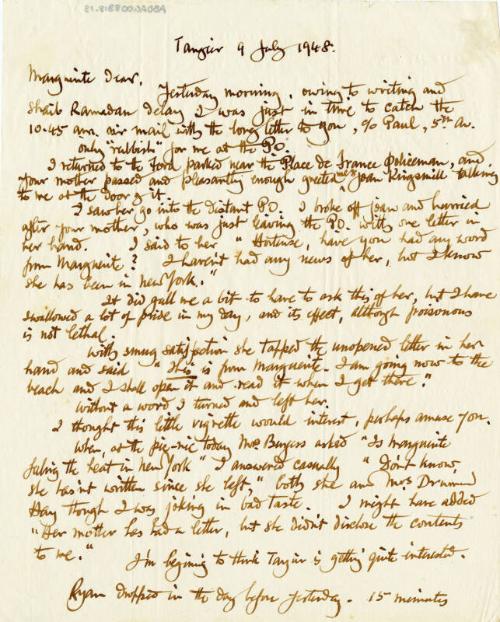 Tangier 9 July 1948.
Marguerite dear,
Yesterday morning, owing to writing and
Ramadan delay I was just in time to catch the
10.45 am. air mail with the long letter to you, c/o Paul, 5th Av.
only "rubbish" for me at the P.O.
I returned to the Ford parked near the Place de France Policeman, and
your mother passed and pleasantly enough greeted me & Joan Kingsmill talking
to me at the door of it.
I saw her go into the distant P.O. I broke off Joan and hurried
after your mother, who was just leaving the P.O. with one letter in
her hand. I said to her "Hortense, have you had any word
from Marguerite? I haven't had any news of her, but I know
she has been in New York."
It did gall me a bit to have to ask this of her, but I have
swallowed a lot of pride in my day, and its effect, although poisonous
is not lethal.
With smug satisfaction she tapped the unopened letter in her
hand and said "This is from Marguerite. I am going now to the
beach and I shall open it and read it when I get there"
Without a word I turned and left her.
I thought this little vignette would interest, perhaps amuse you.
When, at the pic-nic today Mrs Burgess asked "Is Marguerite
feeling the heat in New York" I answered casually "Don't know,
she hasn't written since she left," both she and Mrs Drummond
Hay though I was joking in bad taste. I might have added
"Her mother has had a letter, but she didn't disclose the contents
to me."
I'm begining to think Tangier is getting quite interested.
Ryan dropped in the day before yesterday. 15 minutes